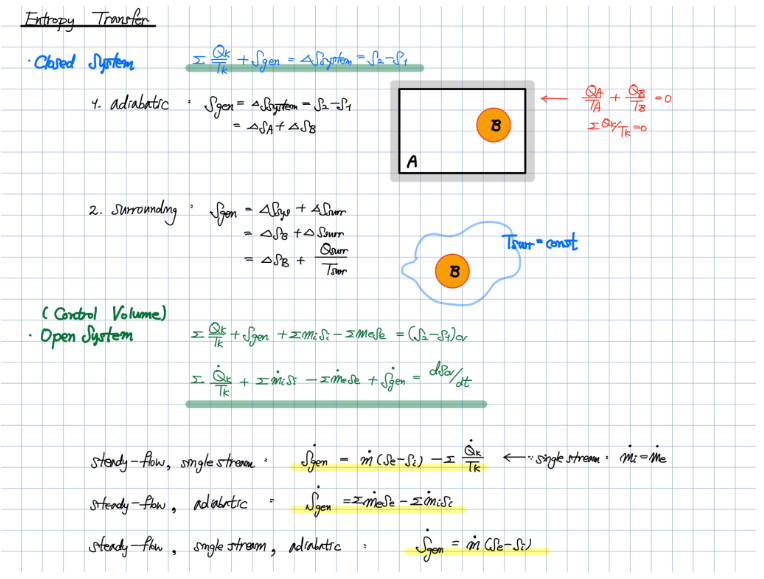 Entropy Transfer
· Closed System Σ Qk/Tk + Sgen = ΔSsystem = S2 - S1
1. adiabatic : Sgen = ΔSsystem = S2 - S1
= ΔSA + ΔSB
A
B
← QA/TA + QB/TB = 0
Σ Qk/Tk = 0
2. surrounding : Sgen = ΔSsys + ΔSsurr
= ΔSB + ΔSsurr
= ΔSB + Qsurr/Tsurr
B
Tsurr = const
(Control Volume)
· Open System Σ Qk/Tk + Sgen + Σmisi - Σmese = (S2 - S1)cv
Σ Q̇k/Tk + Σṁisi - Σṁese + Ṡgen = dScv/dt
steady-flow, single stream : Ṡgen = ṁ (Se - Si) - Σ Q̇k/Tk ← ∵ single stream : ṁi = ṁe
steady-flow, adiabatic : Ṡgen = ΣṁeSe - ΣṁiSi
steady-flow, single stream, adiabatic : Ṡgen = ṁ (Se - Si)